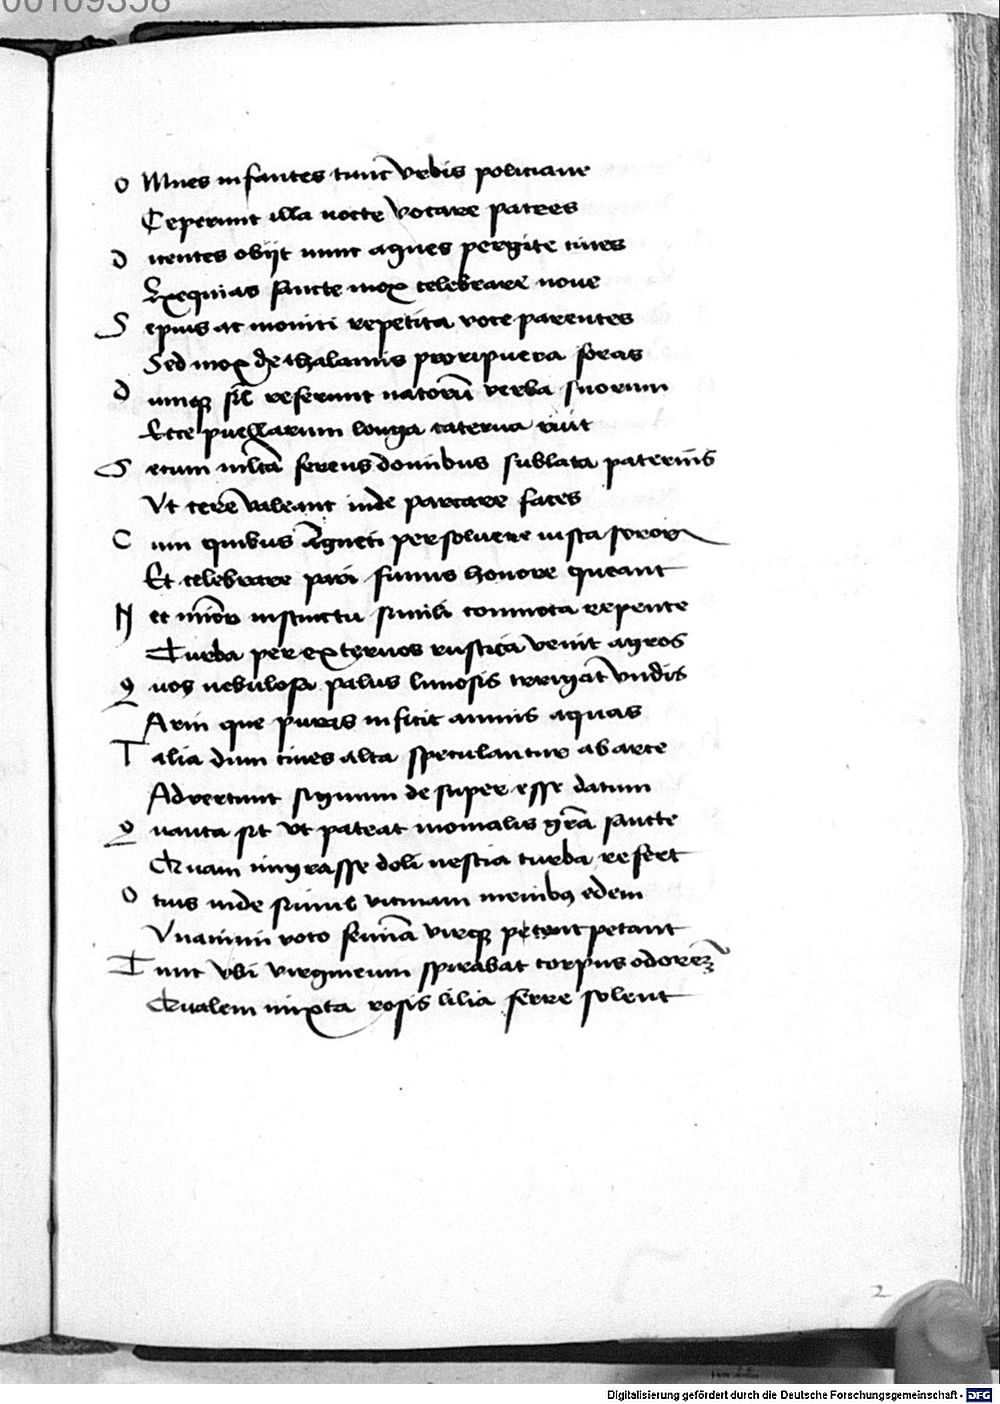 00109358
O Mnes infantes tunc vrbis policiane
Ceperunt illa nocte vocare patres
D icentes obijt nunc agnes pergite ciues
Exequias sancte mox celebrare noue
S epius ac moniti repetita voce parentes
Sed mox de thalamis proripuere foras
D umqꝫ sil referunt natorū verba suorum
Ecce puellarum longa caterua ruit
S ecum mltā ferens domibus sublata paternis
Vt cereū valeant inde parare faces
C um quibus Agneti persoluere iusta soror
Et celebrare pari funus honore queant
N ec minor instinctu simili commota repente
Turba per externos rustica venit agros
Q uos nebulosa palus limosis irrigat vndis
Arm que puras inficit amnis aquas
T alia dum ciues alta speculantur ab arce
Aduertunt signum de super esse datum
Q uanta sit vt pateat monialis grā sancte
Quam migrasse doli nescia turba refert
O cius inde simul vicinam menibꝯ edem
Vnanimi voto femīa virqꝫ petant
T unc vbi virgineum spirabat corpus odorem
Qualem mixta rosis lilia ferre solent
2
Digitalisierung gefördert durch die Deutsche Forschungsgemeinschaft - DFG